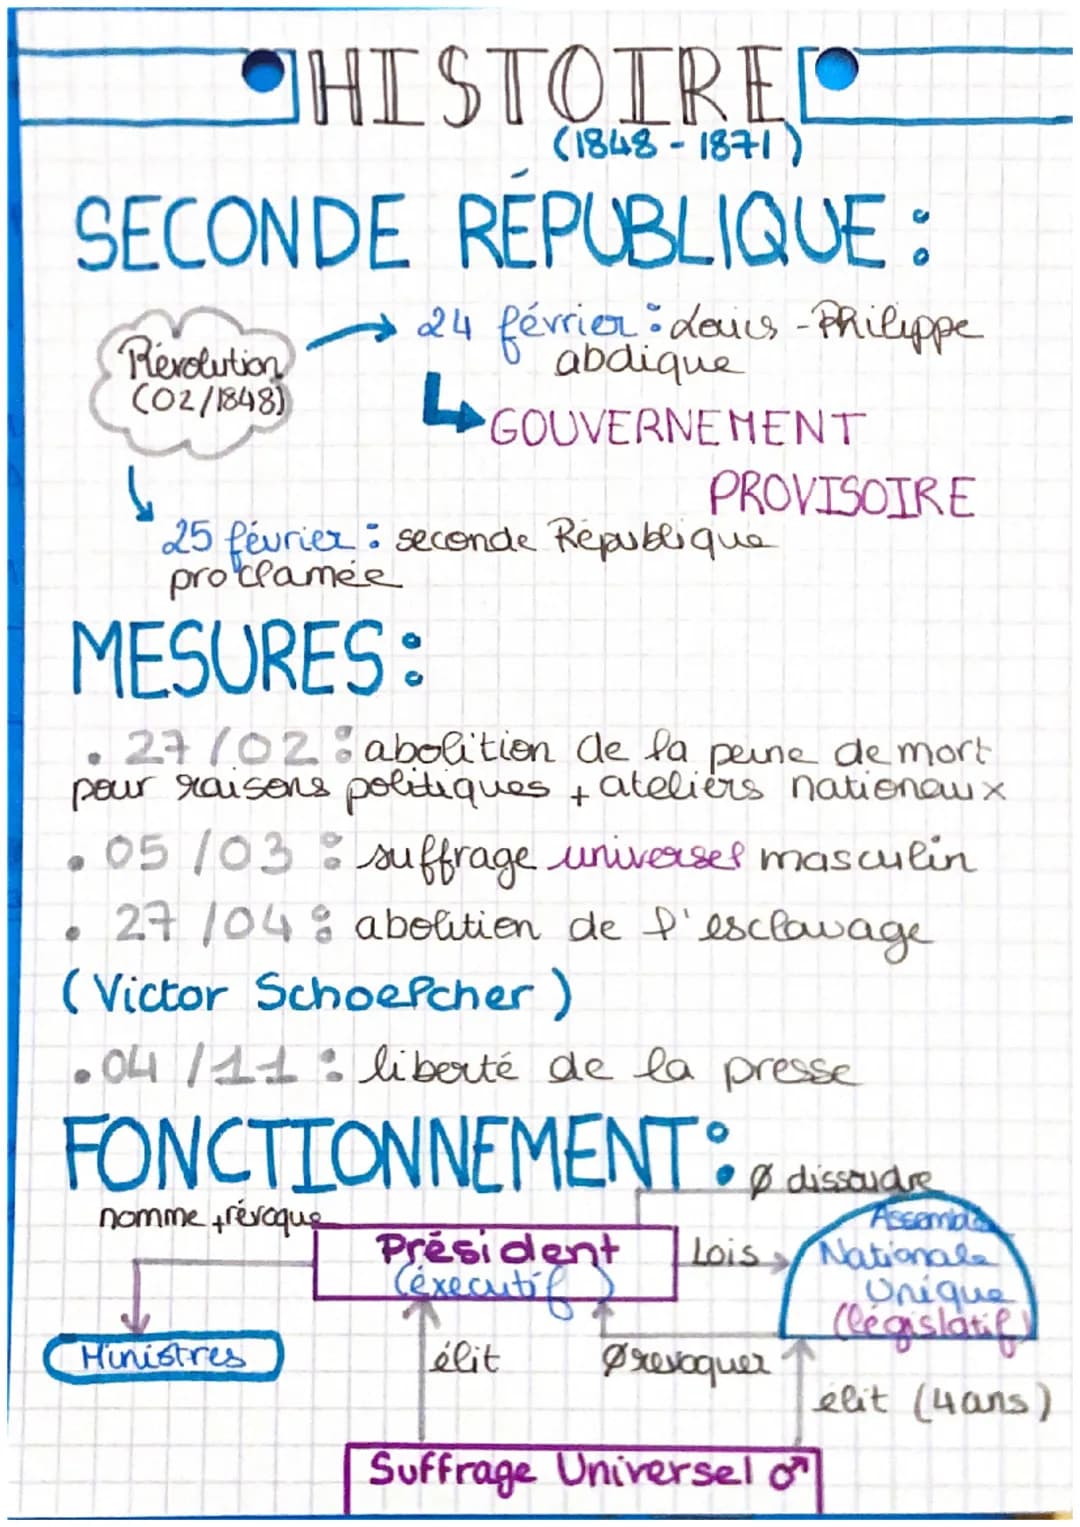 HISTOIRE
(1848 - 1871)
SECONDE RÉPUBLIQUE :
Révolution
(02/1848)
24 février : Louis - Philippe
abdique
GOUVERNEMENT
PROVISOIRE
25 février : seconde République
proclamée
MESURES :
• 27/02 : abolition de la peine de mort
pour raisons politiques + ateliers nationaux
• 05/03 : suffrage universel masculin
• 27/04 : abolition de l'esclavage
(Victor Schoelcher)
• 04/11 : liberté de la presse
FONCTIONNEMENT :
Ø dissoudre
nomme + révoque
Président
(éxecutif)
Lois
Assemblée
Nationale
Unique
(législatif)
Ministres
élit
Ø revoquer
élit (4 ans)
Suffrage Universel ♂